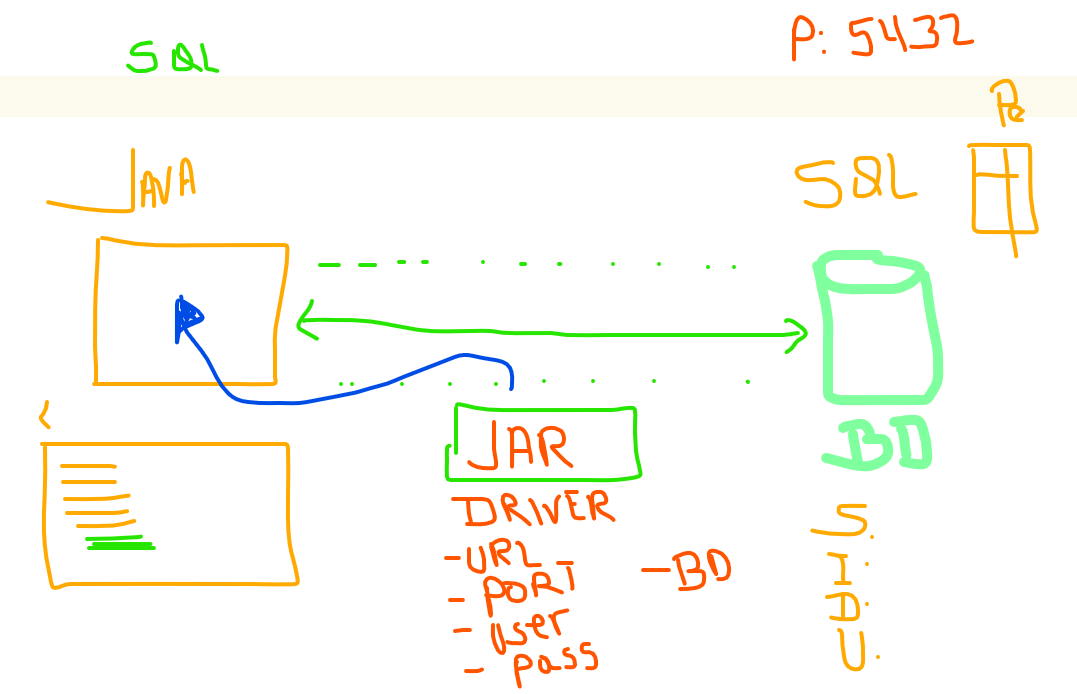 SQL
P: 5432
JAVA
SQL
BD
JAR
DRIVER
- URL
- PORT
- BD
- user
- pass
S.
I.
D.
U.